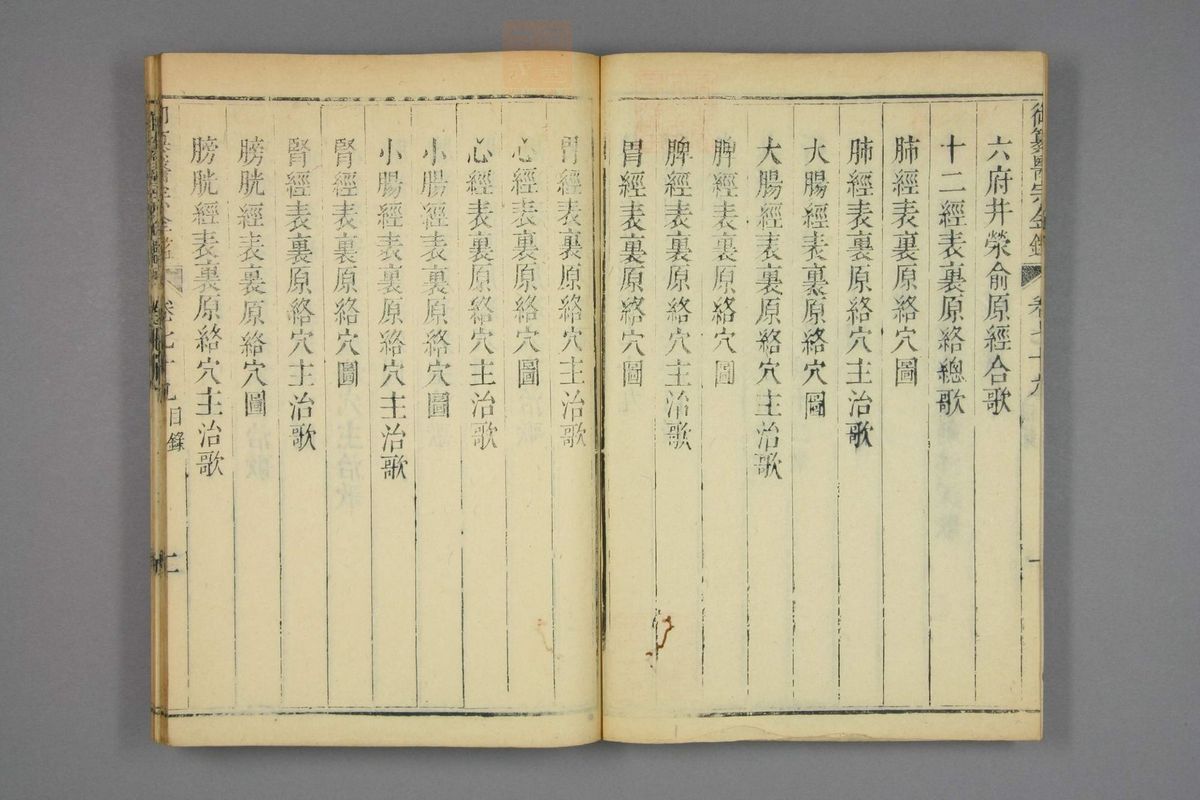 六府井滎俞原經合歌
十二經表裏原絡總歌
肺經表裏原絡穴圖
肺經表裏原絡穴主治歌
大腸經表裏原絡穴圖
大腸經表裏原絡穴主治歌
脾經表裏原絡穴圖
脾經表裏原絡穴主治歌
胃經表裏原絡穴圖
胃經表裏原絡穴主治歌
心經表裏原絡穴圖
心經表裏原絡穴主治歌
小腸經表裏原絡穴圖
小腸經表裏原絡穴主治歌
腎經表裏原絡穴圖
腎經表裏原絡穴主治歌
膀胱經表裏原絡穴圖
膀胱經表裏原絡穴主治歌
卷七十九 目錄
二